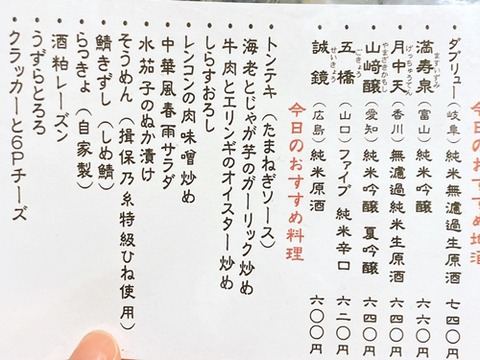 今日のおすすめ地酒
ダブリュー（岐阜）純米無濾過生原酒 七四〇円
満寿泉（富山）純米吟醸 六六〇円
ますいずみ
月中天（香川）無濾過純米生原酒 六四〇円
げっちゅうてん
山﨑醸（愛知）純米吟醸 夏吟醸 六四〇円
やまざきかもし
五橋（山口）ファイブ 純米辛口 六二〇円
ごきょう
誠鏡（広島）純米原酒 六〇〇円
せいきょう
今日のおすすめ料理
・トンテキ（たまねぎソース）
・海老とじゃが芋のガーリック炒め
・牛肉とエリンギのオイスター炒め
・しらすおろし
・レンコンの肉味噌炒め
・中華風春雨サラダ
・水茄子のぬか漬け
・そうめん（揖保乃糸特級ひね使用）
・鯖きずし（しめ鯖）
・らっきょ（自家製）
・酒粕レーズン
・うずらとろろ
・クラッカーと6Pチーズ